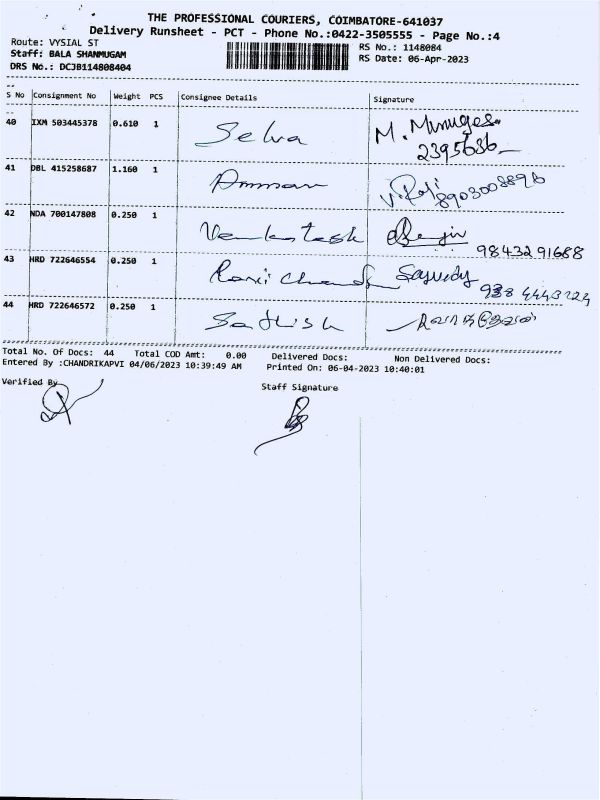 THE PROFESSIONAL COURIERS, COIMBATORE-641037
Delivery Runsheet - PCT - Phone No.:0422-3505555 - Page No.:4
Route: VYSIAL ST
RS No.: 1148084
Staff: BALA SHANMUGAM
RS Date: 06-Apr-2023
DRS No.: DCJB114808404
S No Consignment No Weight PCS Consignee Details Signature
40 IXM 503445378 0.610 1 Selva M. Muruges
2395636
41 DBL 415258687 1.160 1 Amman
8903008896
42 NDA 700147808 0.250 1 Venkatesh
9843291688
43 HRD 722646554 0.250 1 Ravi Chand
44 HRD 722646572 0.250 1 Sathish
Total No. Of Docs: 44 Total COD Amt: 0.00 Delivered Docs: Non Delivered Docs:
Entered By :CHANDRIKAPVI 04/06/2023 10:39:49 AM Printed On: 06-04-2023 10:40:01
Verified By
Staff Signature